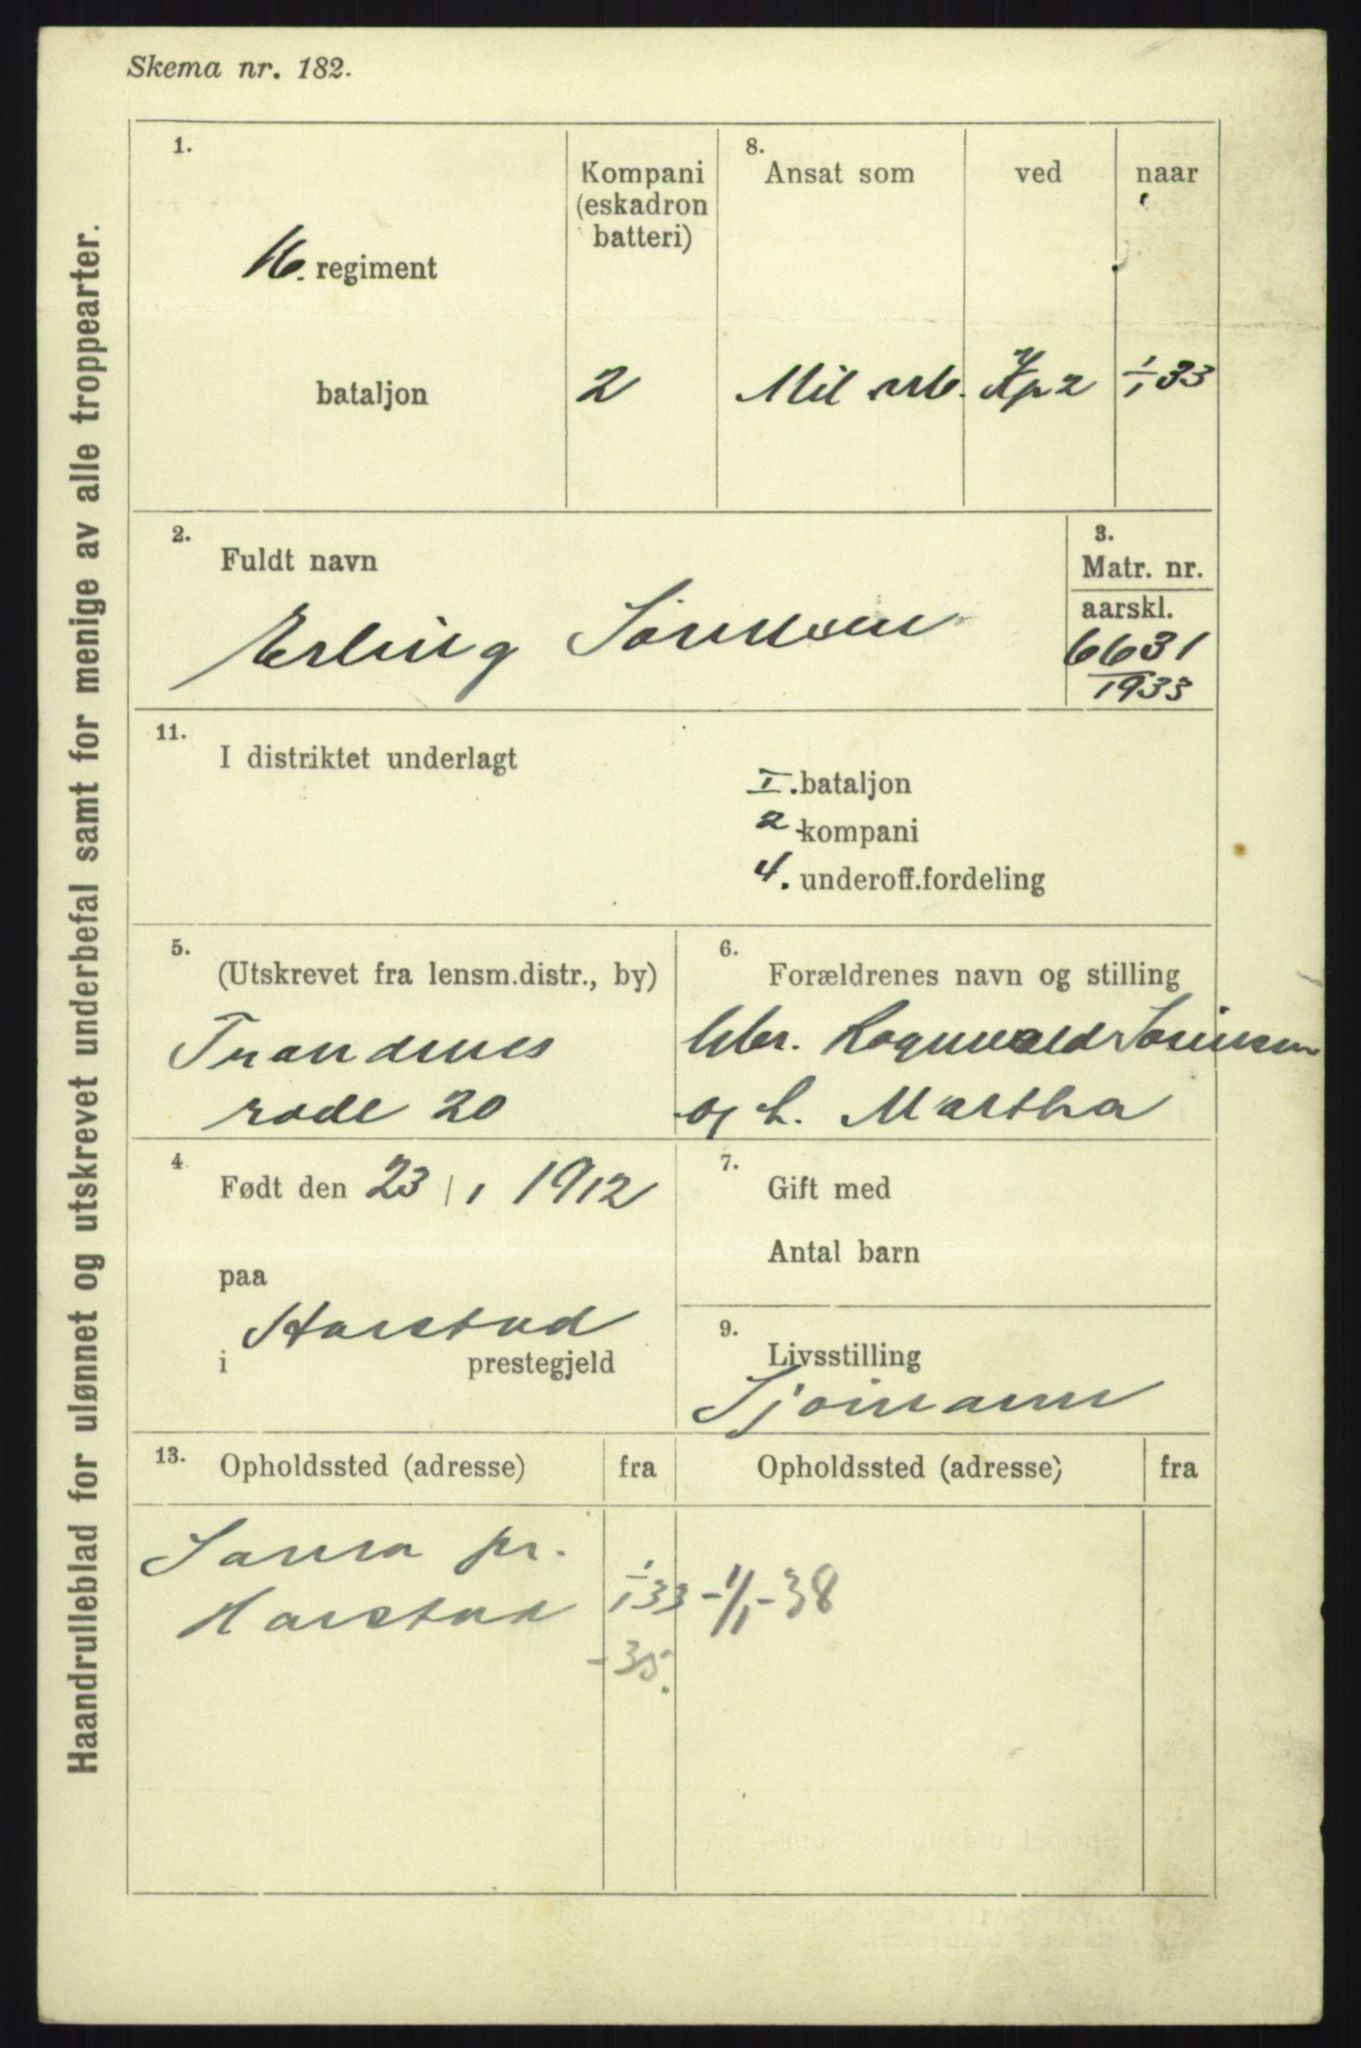 Skema nr. 182.
Haandrulleblad for ulønnet og utskrevet underbefal samt for menige av alle troppearter.
1.
16. regiment
bataljon
Kompani
(eskadron
batteri)
2
8.
Ansat som
Mil arb.
ved
Kp 2
naar
1/1 33
2.
Fuldt navn
Erling Sörensen
3.
Matr. nr.
aarskl.
6631
1933
11.
I distriktet underlagt
I. bataljon
2 kompani
4. underoff.fordeling
5.
(Utskrevet fra lensm.distr., by)
Trondenes
rode 20
6.
Forældrenes navn og stilling
Arb. Ragnvald Sörensen
og h. Martha
4
Født den 23/1 1912
paa
Harstad
i prestegjeld
7.
Gift med
Antal barn
9.
Livsstilling
Sjömann
13.
Opholdssted (adresse) fra
Opholdssted (adresse) fra
Sama pr.
Harstad 1/1 33 - 1/1 - 38
- 35.